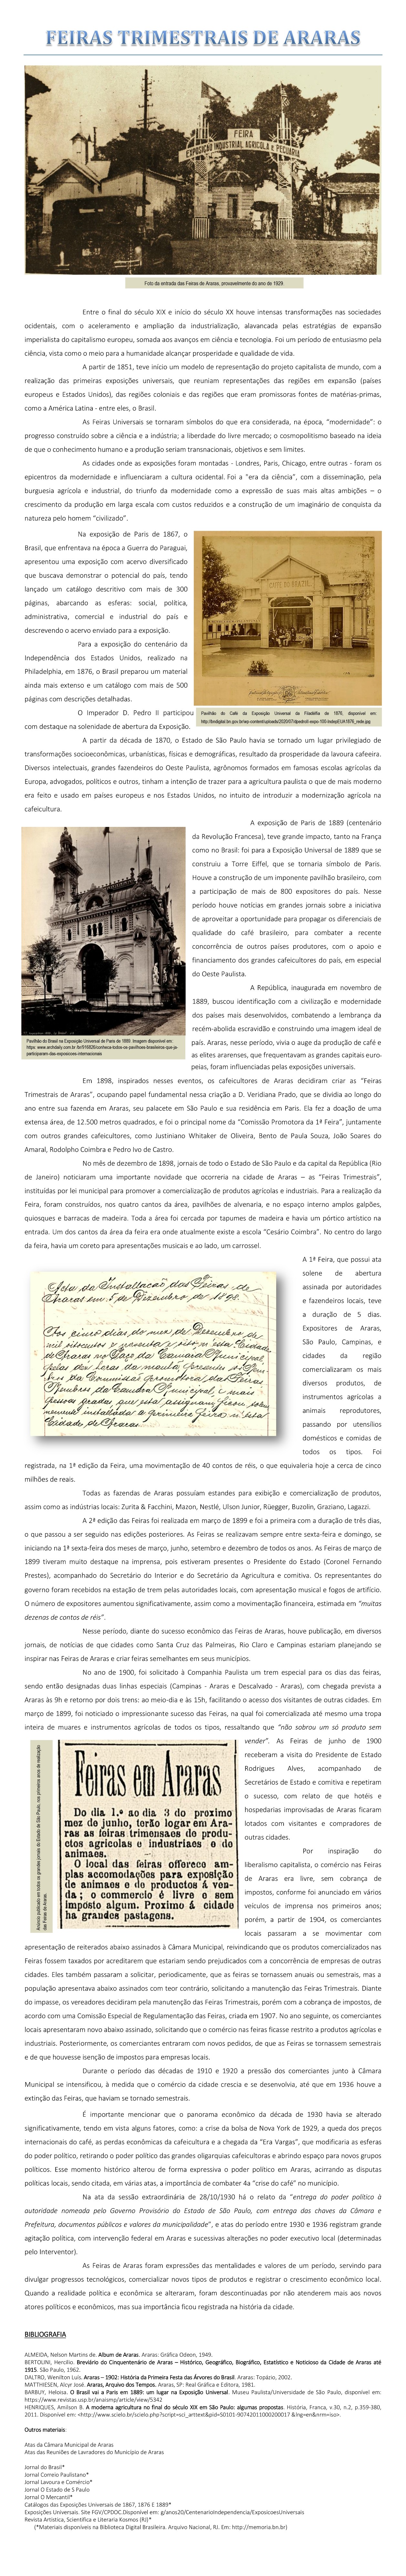 FEIRAS TRIMESTRAIS DE ARARAS
FEIRA
EXPOSIÇÃO INDUSTRIAL AGRICOLA E PECUARIA
Foto da entrada das Feiras de Araras, provavelmente do ano de 1929
Entre o final do século XIX e início do século XX houve intensas transformações nas sociedades
ocidentais, com o aceleramento e ampliação da industrialização, alavancada pelas estratégias de expansão
imperialista do capitalismo europeu, somada aos avanços em ciência e tecnologia. Foi um período de entusiasmo pela
ciência, vista como o meio para a humanidade alcançar prosperidade e qualidade de vida.
A partir de 1851, teve início um modelo de representação do projeto capitalista de mundo, com a
realização das primeiras exposições universais, que reuniam representações das regiões em expansão (países
europeus e Estados Unidos), das regiões coloniais e das regiões que eram promissoras fontes de matérias-primas,
como a América Latina - entre eles, o Brasil.
As Feiras Universais se tornaram símbolos do que era considerada, na época, “modernidade”: o
progresso construído sobre a ciência e a indústria; a liberdade do livre mercado; o cosmopolitismo baseado na ideia
de que o conhecimento humano e a produção seriam transnacionais, objetivos e sem limites.
As cidades onde as exposições foram montadas - Londres, Paris, Chicago, entre outras - foram os
epicentros da modernidade e influenciaram a cultura ocidental. Foi a "era da ciência", com a disseminação, pela
burguesia agrícola e industrial, do triunfo da modernidade como a expressão de suas mais altas ambições – o
crescimento da produção em larga escala com custos reduzidos e a construção de um imaginário de conquista da
natureza pelo homem “civilizado”.
Na exposição de Paris de 1867, o
Brasil, que enfrentava na época a Guerra do Paraguai,
apresentou uma exposição com acervo diversificado
que buscava demonstrar o potencial do país, tendo
lançado um catálogo descritivo com mais de 300
páginas, abarcando as esferas: social, política,
administrativa, comercial e industrial do país e
descrevendo o acervo enviado para a exposição.
Para a exposição do centenário da
Independência dos Estados Unidos, realizado na
Philadelphia, em 1876, o Brasil preparou um material
ainda mais extenso e um catálogo com mais de 500
páginas com descrições detalhadas.
O Imperador D. Pedro II participou
com destaque na solenidade de abertura da Exposição.
Pavilhão do Café da Exposição Universal da Filadélfia de 1876, disponível em:
http://bndigital.bn.gov.br/wp-content/uploads/2020/07/dpedroII-expo-100-IndepEUA1876_rede.jpg
A partir da década de 1870, o Estado de São Paulo havia se tornado um lugar privilegiado de
transformações socioeconômicas, urbanísticas, físicas e demográficas, resultado da prosperidade da lavoura cafeeira.
Diversos intelectuais, grandes fazendeiros do Oeste Paulista, agrônomos formados em famosas escolas agrícolas da
Europa, advogados, políticos e outros, tinham a intenção de trazer para a agricultura paulista o que de mais moderno
era feito e usado em países europeus e nos Estados Unidos, no intuito de introduzir a modernização agrícola na
cafeicultura.
A exposição de Paris de 1889 (centenário
da Revolução Francesa), teve grande impacto, tanto na França
como no Brasil: foi para a Exposição Universal de 1889 que se
construiu a Torre Eiffel, que se tornaria símbolo de Paris.
Houve a construção de um imponente pavilhão brasileiro, com
a participação de mais de 800 expositores do país. Nesse
período houve notícias em grandes jornais sobre a iniciativa
de aproveitar a oportunidade para propagar os diferenciais de
qualidade do café brasileiro, para combater a recente
concorrência de outros países produtores, com o apoio e
financiamento dos grandes cafeicultores do país, em especial
do Oeste Paulista.
Pavilhão do Brasil na Exposição Universal de Paris de 1889. Imagem disponível em:
https: www.archdaily.com.br /br/916826/conheca-todos-os-pavilhoes-brasileiros-que-ja-
participaram-das-exposicoes-internacionais
A República, inaugurada em novembro de
1889, buscou identificação com a civilização e modernidade
dos países mais desenvolvidos, combatendo a lembrança da
recém-abolida escravidão e construindo uma imagem ideal de
país. Araras, nesse período, vivia o auge da produção de café e
as elites ararenses, que frequentavam as grandes capitais euro-
peias, foram influenciadas pelas exposições universais.
Em 1898, inspirados nesses eventos, os cafeicultores de Araras decidiram criar as “Feiras
Trimestrais de Araras”, ocupando papel fundamental nessa criação a D. Veridiana Prado, que se dividia ao longo do
ano entre sua fazenda em Araras, seu palacete em São Paulo e sua residência em Paris. Ela fez a doação de uma
extensa área, de 12,500 metros quadrados, e foi o principal nome da “Comissão Promotora da 1ª Feira”, juntamente
com outros grandes cafeicultores, como Justiniano Whitaker de Oliveira, Bento de Paula Souza, João Soares do
Amaral, Rodolpho Coimbra e Pedro Ivo de Castro.
No mês de dezembro de 1898, jornais de todo o Estado de São Paulo e da capital da República (Rio
de Janeiro) noticiaram uma importante novidade que ocorreria na cidade de Araras – as “Feiras Trimestrais”,
instituídas por lei municipal para promover a comercialização de produtos agrícolas e industriais. Para a realização da
Feira, foram construídos, nos quatro cantos da área, pavilhões de alvenaria, e no espaço interno amplos galpões,
quiosques e barracas de madeira. Toda a área foi cercada por tapumes de madeira e havia um pórtico artístico na
entrada. Um dos cantos da área da feira era onde atualmente existe a escola “Cesário Coimbra”. No centro do largo
da feira, havia um coreto para apresentações musicais e ao lado, um carrossel.
Acta da Installacão das Feiras de
Araras em 5 de Dezembro de 1898.
A 1ª Feira, que possui ata
solene de abertura
assinada por autoridades
e fazendeiros locais, teve
a duração de 5 dias.
Expositores de Araras,
São Paulo, Campinas, e
cidades da região
comercializaram os mais
diversos produtos, de
instrumentos agrícolas a
animais reprodutores,
passando por utensílios
domésticos e comidas de
todos os tipos. Foi
registrada, na 1ª edição da Feira, uma movimentação de 40 contos de réis, o que equivaleria hoje a cerca de cinco
milhões de reais.
Todas as fazendas de Araras possuíam estandes para exibição e comercialização de produtos,
assim como as indústrias locais: Zurita & Facchini, Mazon, Nestlé, Ulson Junior, Rüegger, Buzolin, Graziano, Lagazzi.
A 2ª edição das Feiras foi realizada em março de 1899 e foi a primeira com a duração de três dias,
o que passou a ser seguido nas edições posteriores. As Feiras se realizavam sempre entre sexta-feira e domingo, se
iniciando na 1ª sexta-feira dos meses de março, junho, setembro e dezembro de todos os anos. As Feiras de março de
1899 tiveram muito destaque na imprensa, pois estiveram presentes o Presidente do Estado (Coronel Fernando
Prestes), acompanhado do Secretário do Interior e do Secretário da Agricultura e comitiva. Os representantes do
governo foram recebidos na estação de trem pelas autoridades locais, com apresentação musical e fogos de artifício.
O número de expositores aumentou significativamente, assim como a movimentação financeira, estimada em “muitas
dezenas de contos de réis”.
Nesse período, diante do sucesso econômico das Feiras de Araras, houve publicação, em diversos
jornais, de notícias de que cidades como Santa Cruz das Palmeiras, Rio Claro e Campinas estariam planejando se
inspirar nas Feiras de Araras e criar feiras semelhantes em seus municípios.
No ano de 1900, foi solicitado à Companhia Paulista um trem especial para os dias das feiras,
sendo então designadas duas linhas especiais (Campinas - Araras e Descalvado - Araras), com chegada prevista a
Araras às 9h e retorno por dois trens: ao meio-dia e às 15h, facilitando o acesso dos visitantes de outras cidades. Em
março de 1899, foi noticiado o impressionante sucesso das Feiras, na qual foi comercializada até mesmo uma tropa
inteira de muares e instrumentos agrícolas de todos os tipos, ressaltando que “não sobrou um só produto sem
vender”. As Feiras de junho de 1900
receberam a visita do Presidente de Estado
Rodrigues Alves, acompanhado de
Secretários de Estado e comitiva e repetiram
o sucesso, com relato de que hotéis e
hospedarias improvisadas de Araras ficaram
lotados com visitantes e compradores de
outras cidades.
Anúncio publicado em todos os grandes jornais do Estado de São Paulo, nos primeiros anos de realização
das Feiras de Araras.
Feiras em Araras
Do dia 1.º ao dia 3 do proximo
mez de junho, terão logar em Ara-
ras as feiras trimensaes de produ-
ctos agricolas e industriaes e de
animaes.
O local das feiras offerece am-
plas accommodações para exposição
de animaes e de productos á ven-
da; o commercio é livre e sem
imposto algum. Proximo á cidade
ha grandes pastagens.
Por inspiração do
liberalismo capitalista, o comércio nas Feiras
de Araras era livre, sem cobrança de
impostos, conforme foi anunciado em vários
veículos de imprensa nos primeiros anos;
porém, a partir de 1904, os comerciantes
locais passaram a se movimentar com
apresentação de reiterados abaixo assinados à Câmara Municipal, reivindicando que os produtos comercializados nas
Feiras fossem taxados por acreditarem que estariam sendo prejudicados com a concorrência de empresas de outras
cidades. Eles também passaram a solicitar, periodicamente, que as feiras se tornassem anuais ou semestrais, mas a
população apresentava abaixo assinados com teor contrário, solicitando a manutenção das Feiras Trimestrais. Diante
do impasse, os vereadores decidiram pela manutenção das Feiras Trimestrais, porém com a cobrança de impostos, de
acordo com uma Comissão Especial de Regulamentação das Feiras, criada em 1907. No ano seguinte, os comerciantes
locais apresentaram novo abaixo assinado, solicitando que o comércio nas feiras ficasse restrito a produtos agrícolas e
industriais. Posteriormente, os comerciantes entraram com novos pedidos, de que as Feiras se tornassem semestrais
e de que houvesse isenção de impostos para empresas locais.
Durante o período das décadas de 1910 e 1920 a pressão dos comerciantes junto à Câmara
Municipal se intensificou, à medida que o comércio da cidade crescia e se desenvolvia, até que em 1936 houve a
extinção das Feiras, que haviam se tornado semestrais.
É importante mencionar que o panorama econômico da década de 1930 havia se alterado
significativamente, tendo em vista alguns fatores, como: a crise da bolsa de Nova York de 1929, a queda dos preços
internacionais do café, as perdas econômicas da cafeicultura e a chegada da “Era Vargas”, que modificaria as esferas
do poder político, retirando o poder político das grandes oligarquias cafeicultoras e abrindo espaço para novos grupos
políticos. Esse momento histórico alterou de forma expressiva o poder político em Araras, acirrando as disputas
políticas locais, sendo citada, em várias atas, a importância de combater 4a “crise do café” no município.
Na ata da sessão extraordinária de 28/10/1930 há o relato da “entrega do poder político à
autoridade nomeada pelo Governo Provisório do Estado de São Paulo, com entrega das chaves da Câmara e
Prefeitura, documentos públicos e valores da municipalidade”, e atas do período entre 1930 e 1936 registram grande
agitação política, com intervenção federal em Araras e sucessivas alterações no poder executivo local (determinadas
pelo Interventor).
As Feiras de Araras foram expressões das mentalidades e valores de um período, servindo para
divulgar progressos tecnológicos, comercializar novos tipos de produtos e registrar o crescimento econômico local.
Quando a realidade política e econômica se alteraram, foram descontinuadas por não atenderem mais aos novos
atores políticos e econômicos, mas sua importância ficou registrada na história da cidade.
BIBLIOGRAFIA
ALMEIDA, Nelson Martins de. Álbum de Araras. Araras: Gráfica Odeon, 1949.
BERTOLINI, Hercílio. Breviário do Cinquentenário de Araras – Histórico, Geográfico, Biográfico, Estatístico e Noticioso da Cidade de Araras até
1915. São Paulo, 1962.
DALTRO, Wenilton Luís. Araras – 1902: História da Primeira Festa das Árvores do Brasil. Araras: Topázio, 2002.
MATTHIESEN, Alcyr José. Araras, Arquivo dos Tempos. Araras, SP: Real Gráfica e Editora, 1981.
BARBUY, Heloisa. O Brasil vai a Paris em 1889: um lugar na Exposição Universal. Museu Paulista/Universidade de São Paulo, disponível em:
https://www.revistas.usp.br/anaismp/article/view/5342
HENRIQUES, Amilson B. A moderna agricultura no final do século XIX em São Paulo: algumas propostas. História, Franca, v.30, n.2, p.359-380,
2011. Disponível em: <http://www.scielo.br/scielo.php?script=sci_arttext&pid=S0101-90742011000200017 &lng=en&nrm=iso>.
Outros materiais:
Atas da Câmara Municipal de Araras
Atas das Reuniões de Lavradores do Município de Araras
Jornal do Brasil*
Jornal Correio Paulistano*
Jornal Lavoura e Comércio*
Jornal O Estado de S Paulo
Jornal O Mercantil*
Catálogos das Exposições Universais de 1867, 1876 E 1889*
Exposições Universais. Site FGV/CPDOC.Disponível em: g/anos20/CentenarioIndependencia/ExposicoesUniversais
Revista Artistica, Scientifica e Literaria Kosmos (RJ)*
(*Materiais disponíveis na Biblioteca Digital Brasileira. Arquivo Nacional, RJ. Em: http://memoria.bn.br)